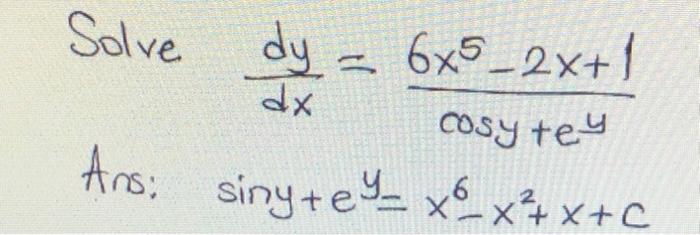 Solve dy/dx = (6x⁵-2x+1)/(cosy+eʸ)
Ans: siny+eʸ= x⁶-x²+x+c